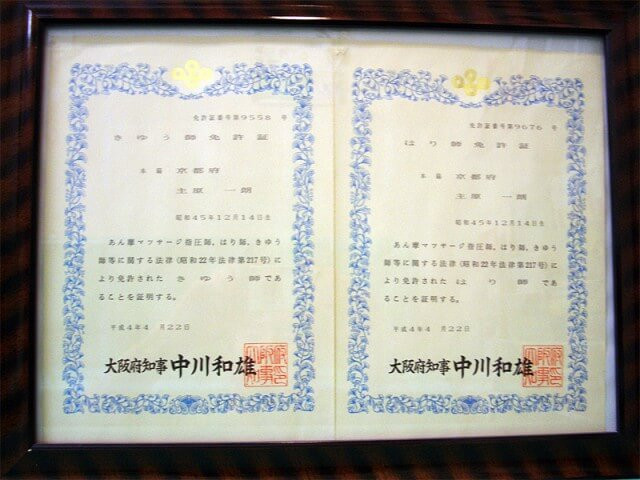 免許証番号第9558 号
きゆう師免許証
本籍 京都府
主原 一朗
昭和45年12月14日生
あん摩マッサージ指圧師、はり師、きゆう
師等に関する法律(昭和22年法律第217号)に
より免許された きゆう師 であ
ることを証明する。
平成4年4 月22日
大阪府知事 中川和雄
免許証番号第9676 号
はり師免許証
本籍 京都府
主原 一朗
昭和45年12月14日生
あん摩マッサージ指圧師、はり師、きゆう
師等に関する法律(昭和22年法律第217号)に
より免許された はり 師 であ
ることを証明する。
平成4年4 月22日
大阪府知事 中川和雄